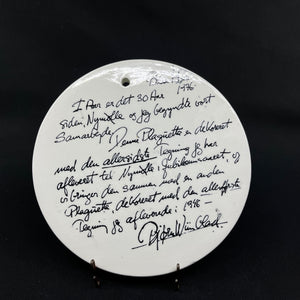 1976.
I Aar er det 30 Aar
siden Nymølle og jeg begyndte vort
Samarbejde.
Denne Plaquette er dekoreret
med den allersidste Tegning jeg har
afleveret til Nymølle i Jubilæumsaaret, og
vi bringer den sammen med en anden
Plaquette dekoreret med den allerførste
Tegning jeg afleverede i 1946 –
Bjørn Wiinblad